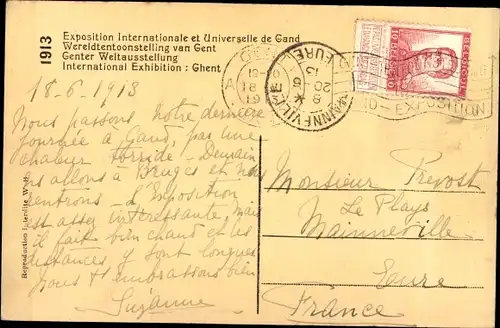 1913
Exposition Internationale et Universelle de Gand
Wereldtentoonstelling van Gent
Genter Weltausstellung
International Exhibition : Ghent
18-6-1913
Nous passons notre dernière
journée à Gand, par une
chaleur torride - Demain
ns allons à Bruges et nous
rentrons - l'Exposition
est assez intéressante, mais
il fait bien chaud et les
distances y sont longues
nous ts embrassons bien
Suzanne
Reproduction Interdite
BELGIQUE
EURE
MAINNEVILLE
EXPOSITION
Monsieur Prevost
Le Plays
Mainneville
Eure
France